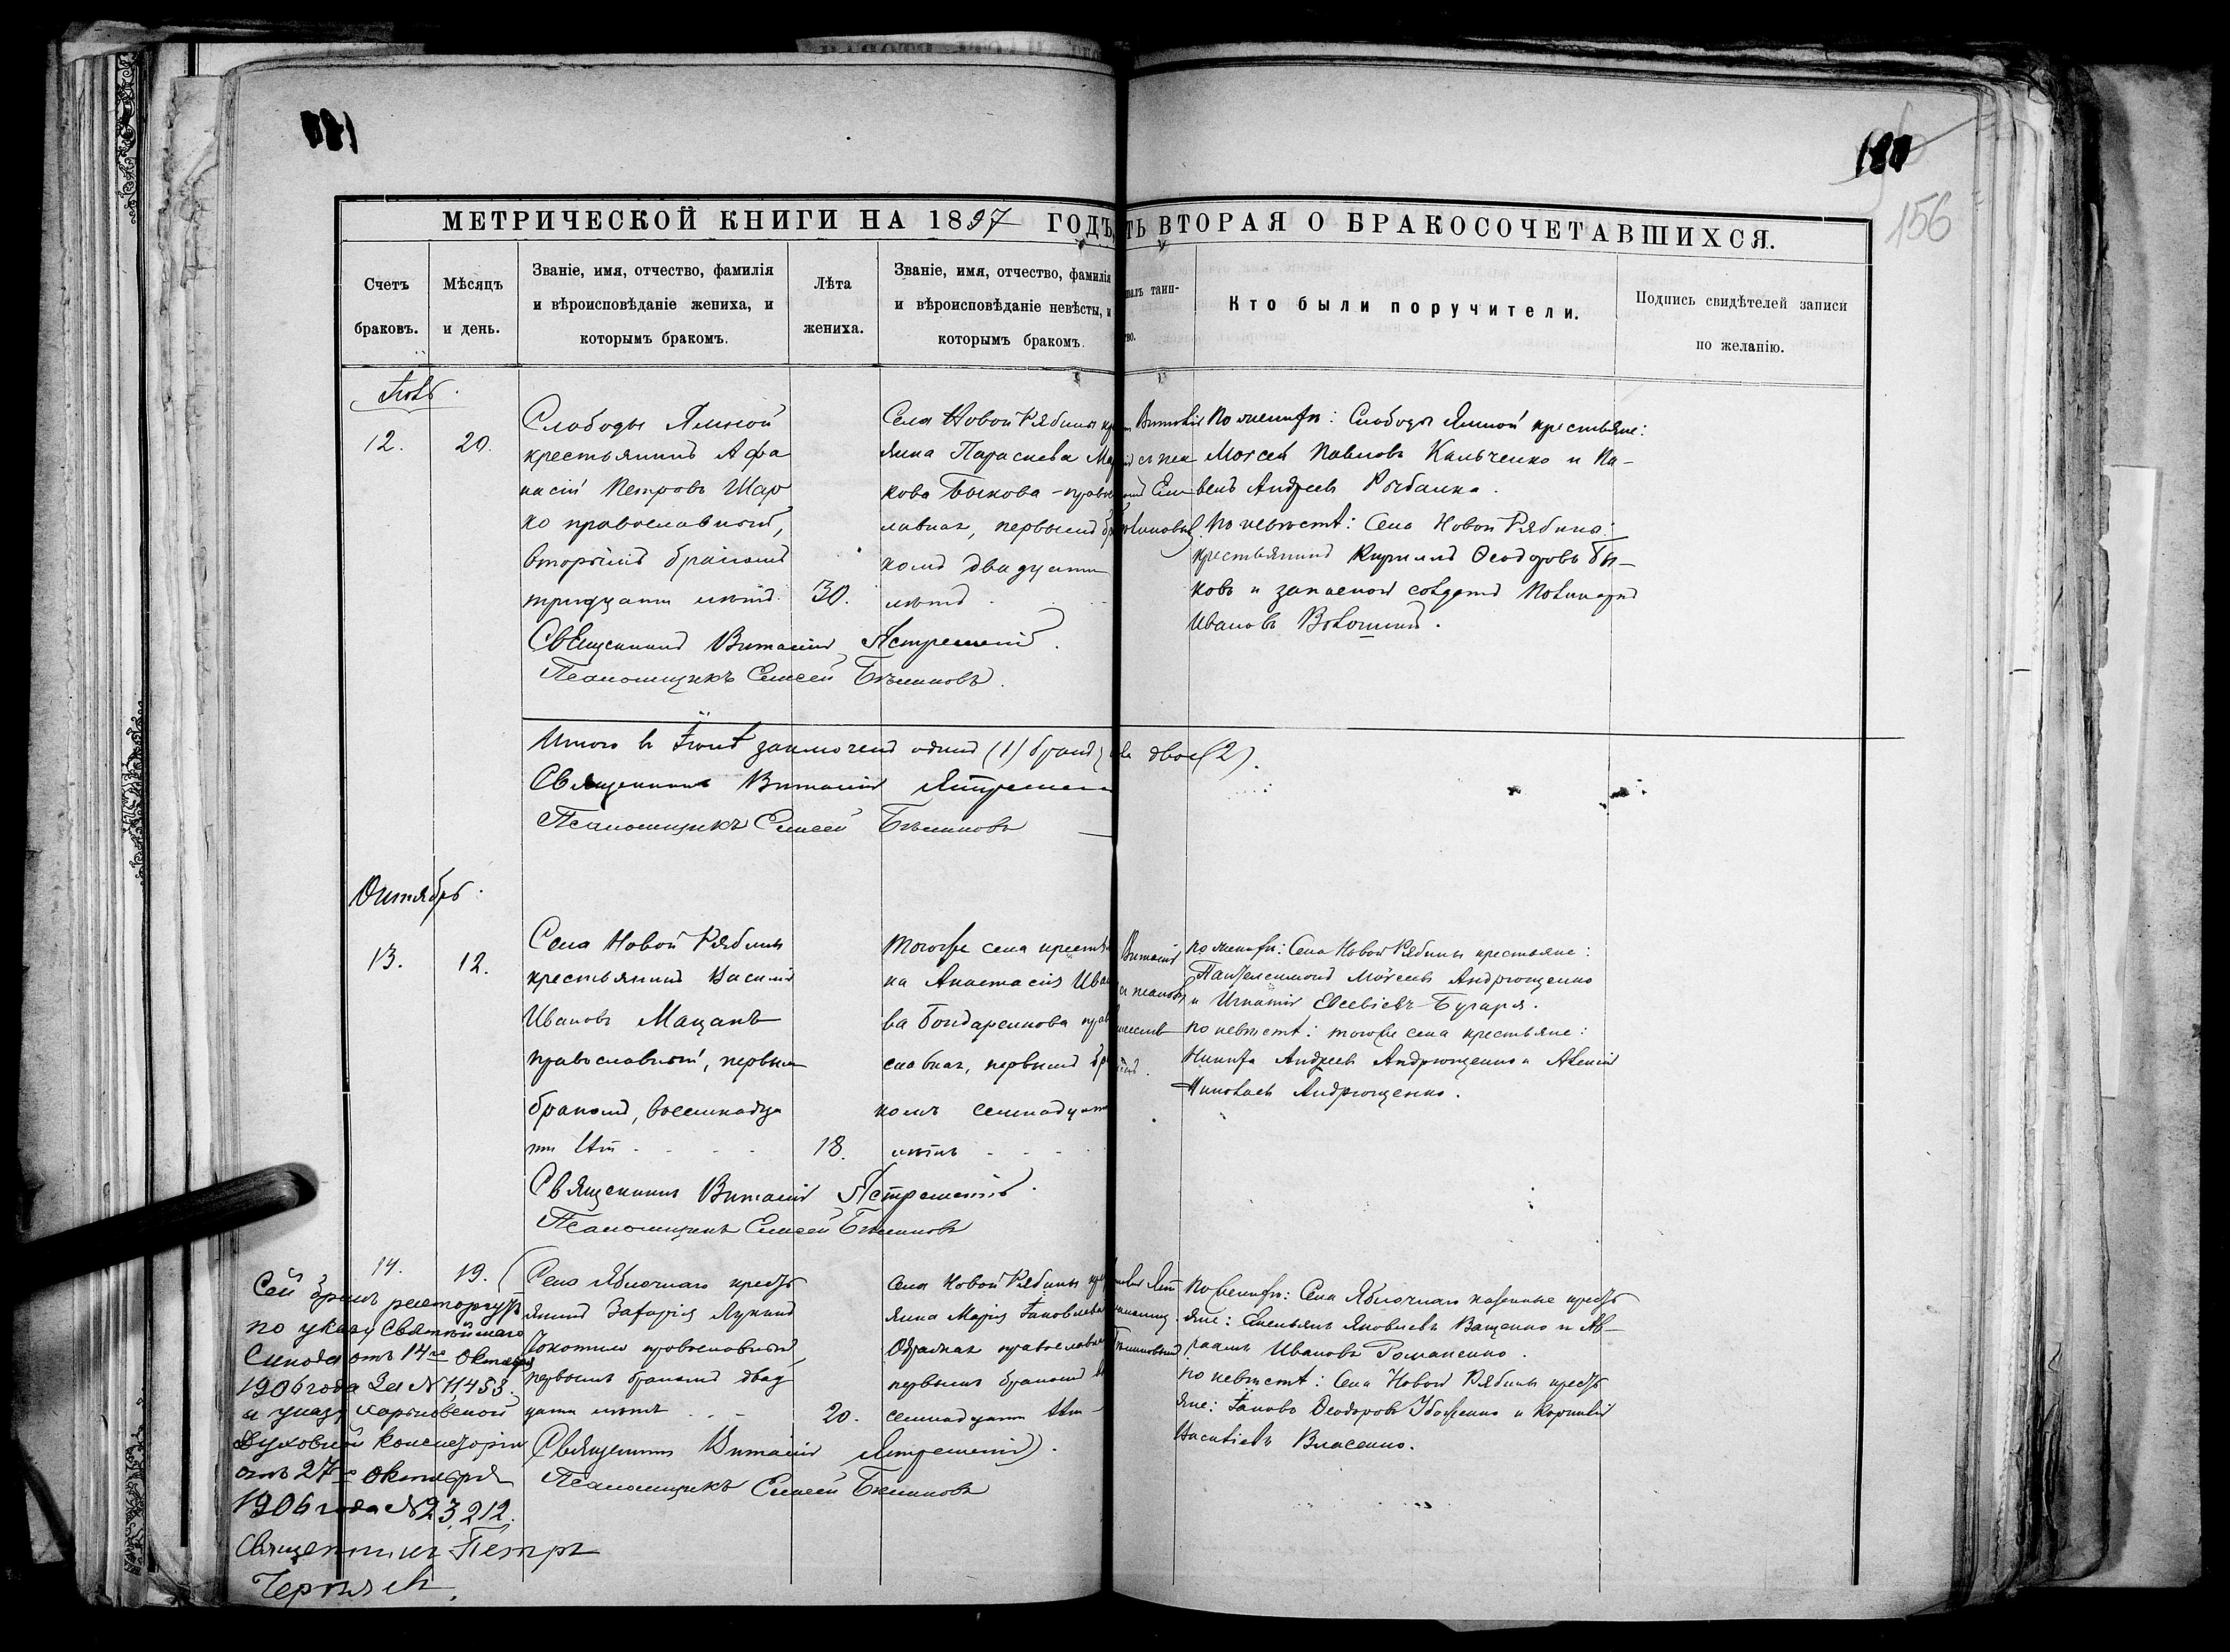 156
МЕТРИЧЕСКОЙ КНИГИ НА 1897 ГОДЪ
ТЬ ВТОРАЯ О БРАКОСОЧЕТАВШИХСЯ.
Счетъ
браковъ.
Мѣсяцъ
и день.
Званіе, имя, отчество, фамилія
и вѣроисповѣданіе жениха, и
которымъ бракомъ.
Лѣта
жениха.
Званіе, имя, отчество, фамилія
и вѣроисповѣданіе невѣсты, и
которымъ бракомъ.
Кто были поручители.
Подпись свидѣтелей записи
по желанію.
12.
20.
Слободы Ямной
крестьянинъ Афа
насій Петровъ Шар
ко православный,
вторымъ бракомъ
тридцати лѣтъ.
30.
Села Новой Рябины кр
янка Параскева Ма
кова Быкова - право
лавная, первымъ бр
комъ двадцати
лѣтъ
По женихѣ: Слободы Ямной крестьяне:
Моѵсей Павловъ Кальченко и Па-
велъ Андреевъ Рыбалка.
По невѣстѣ: Села Новой Рябины
крестьянинъ Кириллъ Ѳеодоровъ Бы-
ковъ и запасной солдатъ
Ивановъ Волошинъ.
Священникъ Виталій Ястремскій.
Псаломщикъ Елисей Бѣликовъ.
Итого въ Іюлѣ заключенъ одинъ (1) бракъ
двое (2).
Священникъ Виталій Ястремск
Псаломщикъ Елисей Бѣликовъ
Октябрь.
13.
12.
Села Новой Рябины
крестьянинъ Василій
Ивановъ Мацакъ
православный, первым
бракомъ, восемнадца
ти лѣт
18.
Тогоже села крестья
ка Анастасія Ива
ва Бондаренкова прав
славная, первымъ бра
комъ семнадцати
лѣтъ
Виталій
по женихѣ: Села Новой Рябины крестьяне:
Пантелеимонъ Моѵсеевъ Андрющенко
и Игнатій Евсевіевъ Бугаря.
по невѣстѣ: тогоже села крестьяне:
Никита Андреевъ Андрющенко и Алексій
Николаевъ Андрющенко.
Священникъ Виталій Ястремскій.
Псаломщикъ Елисей Бѣликовъ
14.
19.
Села Яблочнаго крест
янинъ Захарія Лукинъ
православный,
первымъ бракомъ двад
цати лѣтъ
20.
Села Новой Рябины кр
янка Марія Іаковлева
православная
первымъ бракомъ
семнадцати лѣт
По женихѣ: Села Яблочнаго казенные крест
яне: Емельянъ Яковлевъ Ващенко и Ав-
раамъ Ивановъ Романенко.
по невѣстѣ: Села Новой Рябины крест
яне: Іаковъ Ѳеодоровъ Убоженко и Корнилій
Василіевъ Власенко.
Священникъ Виталій Ястремскій.
Псаломщикъ Елисей Бѣликовъ
Сей бракъ расторгнут
по указу Святѣйшаго
Синода отъ 14го Октября
1906 года За № 11453.
и указу Харьковской
Духовной Консисторіи
отъ 27го Октября
1906 года № 23,212.
Священникъ Петръ
Черняев.